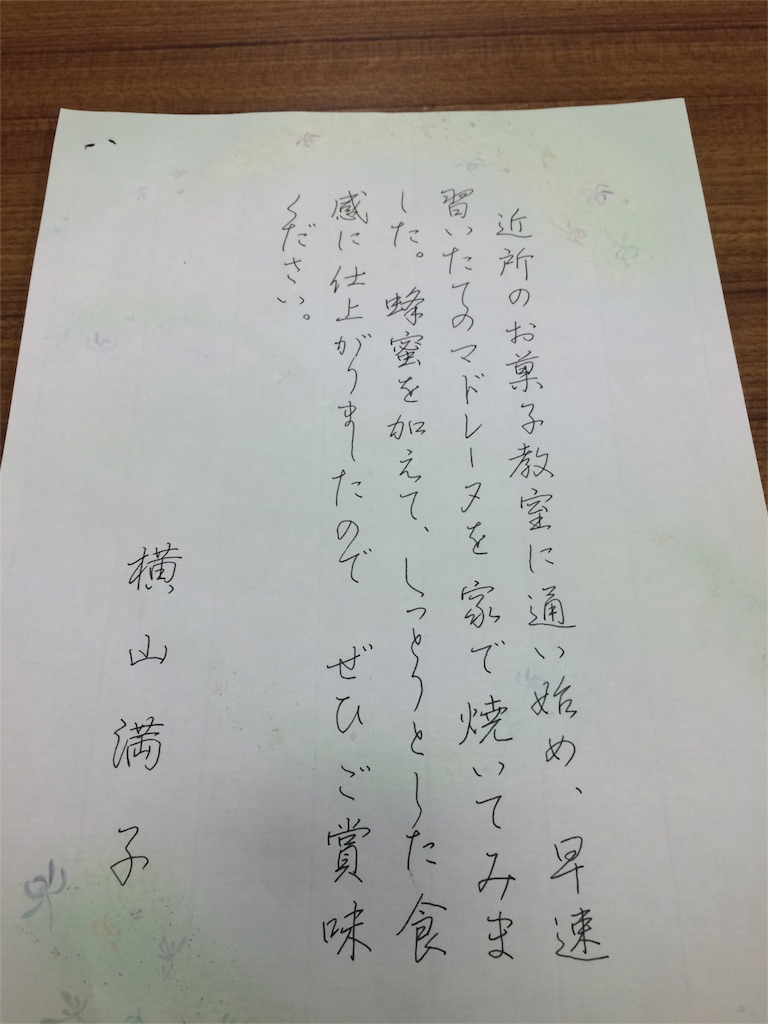 近所のお菓子教室に通い始め、早速
習いたてのマドレーヌを家で焼いてみま
した。蜂蜜を加えて、しっとりとした食
感に仕上がりましたので ぜひご賞味
ください。
横山満子